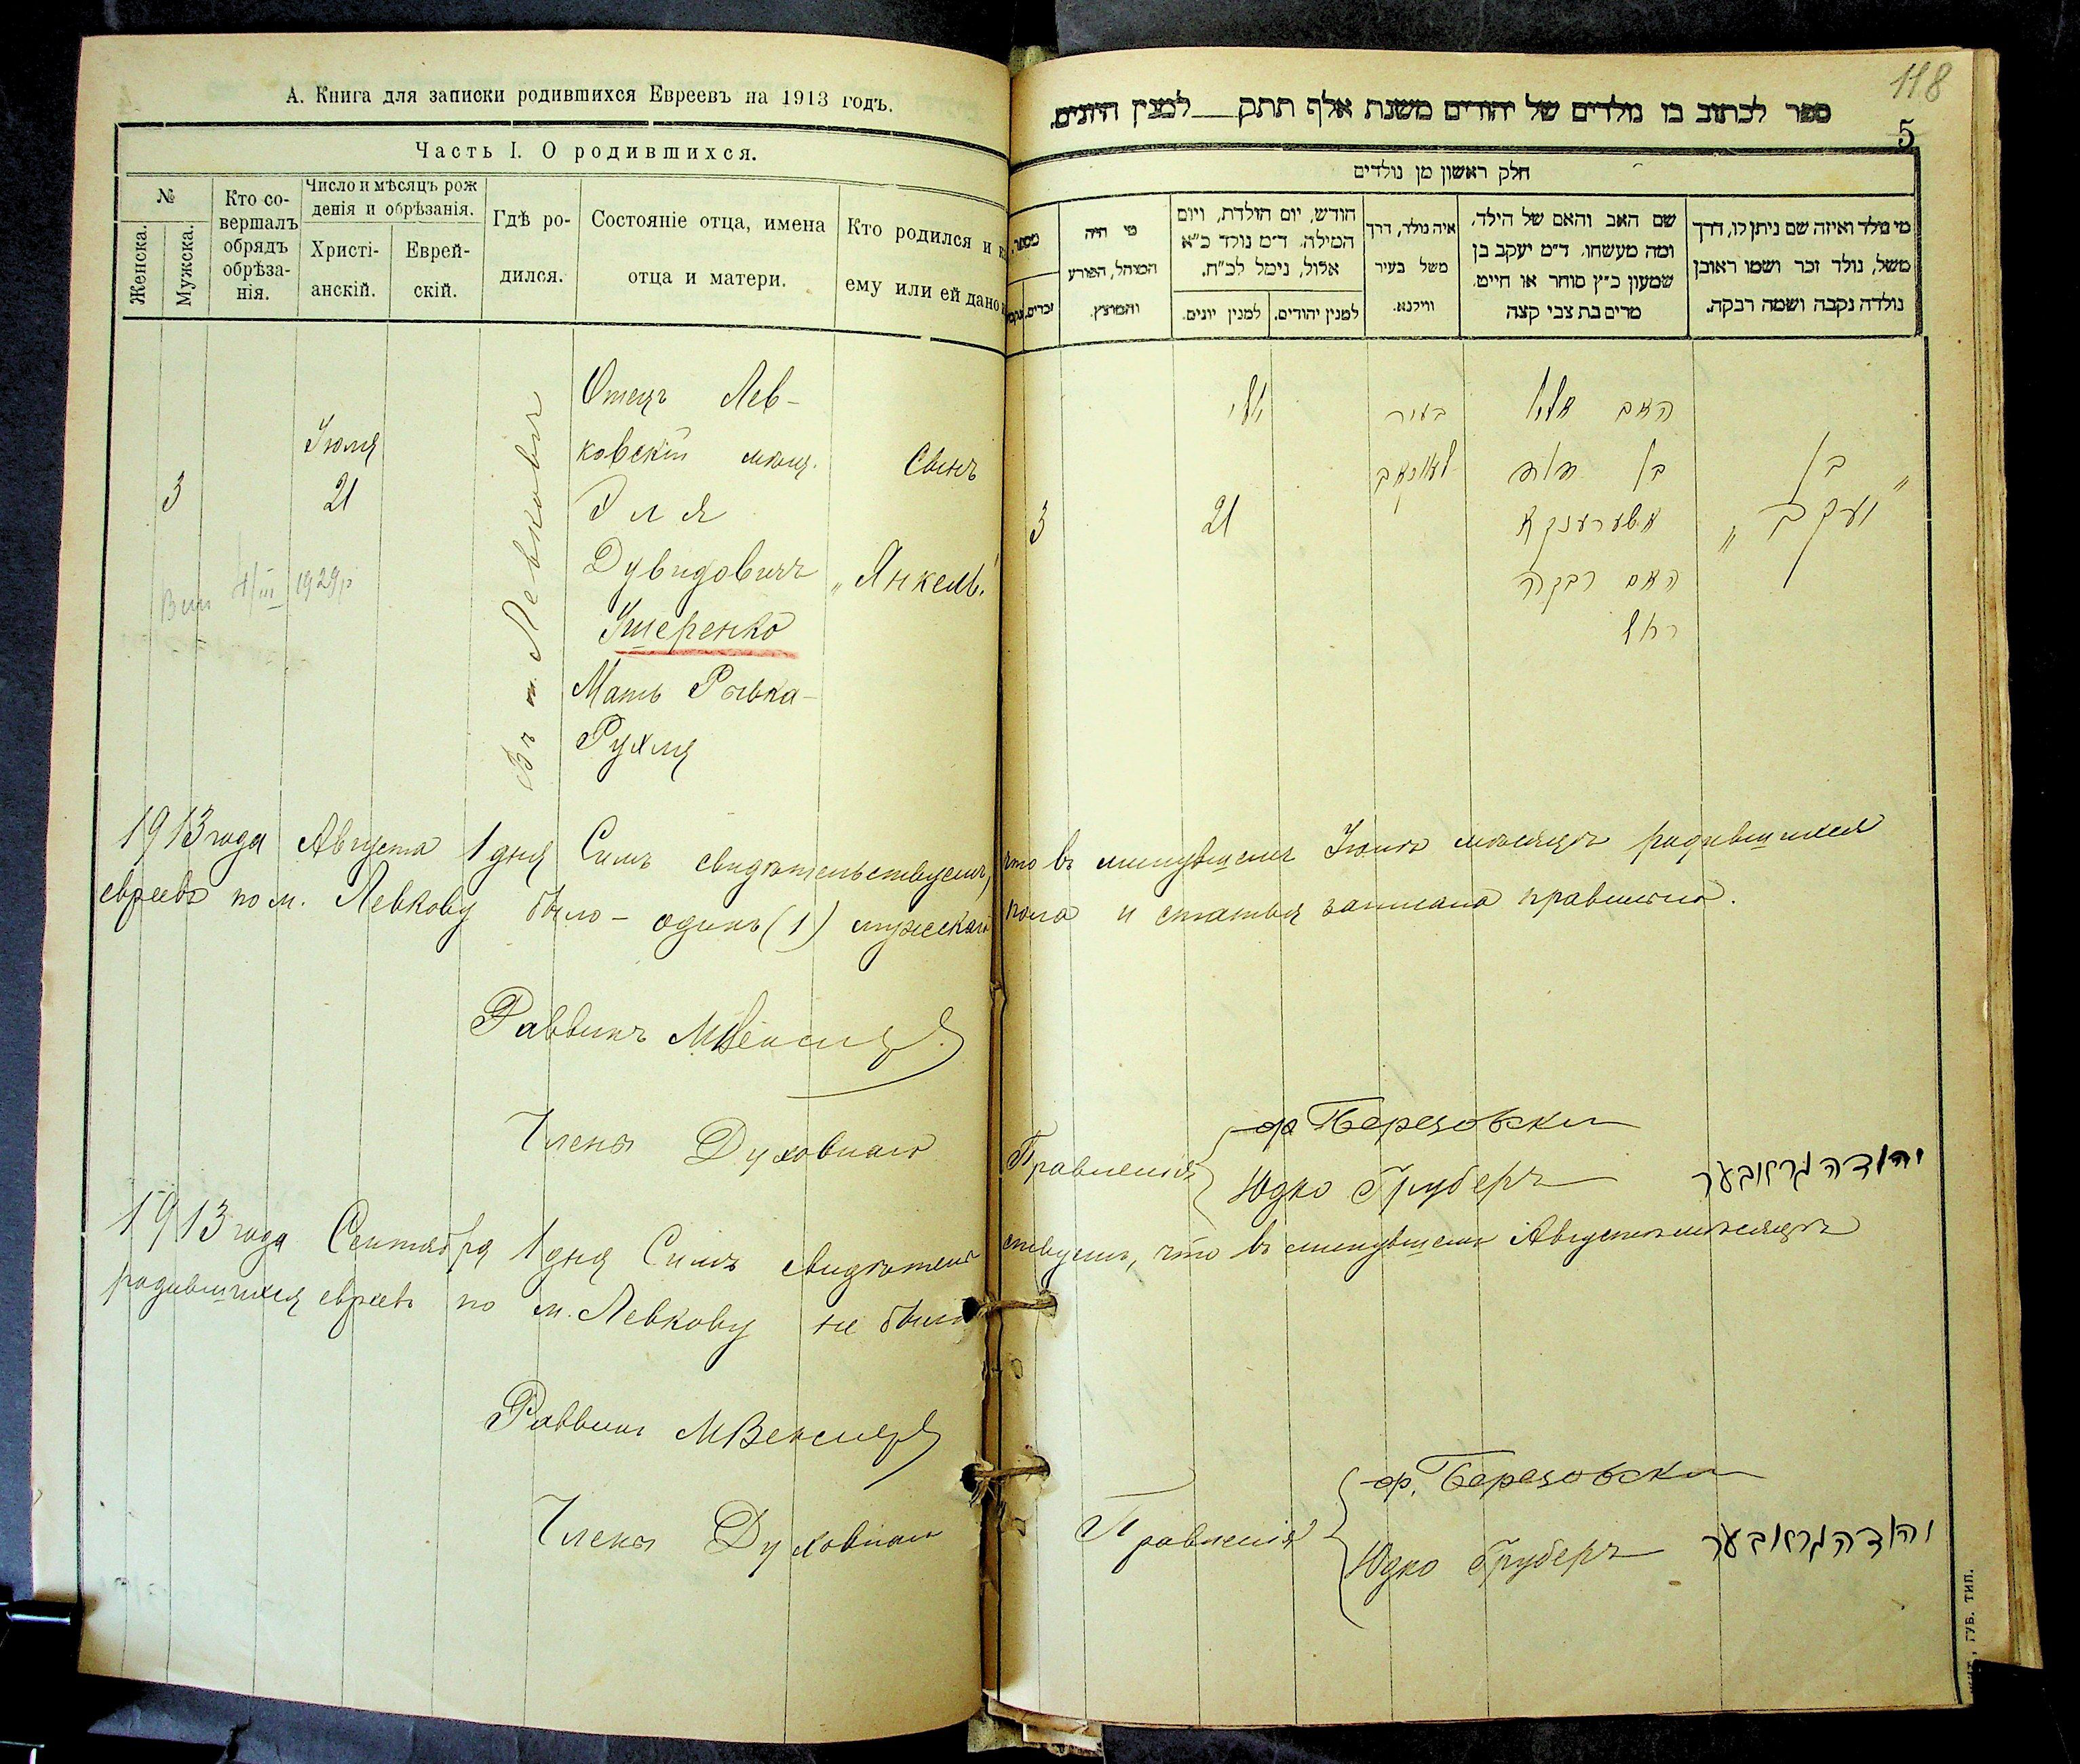 А. Книга для записки родившихся Евреевъ на 1913 годъ.
Часть I. О родившихся.
№
Женска.
Мужска.
Кто со-
вершалъ
обрядъ
обрѣза-
нія.
Число и мѣсяцъ рож
денія и обрѣзанія.
Христі-
анскій.
Еврей-
скій.
Гдѣ ро-
дился.
Состояніе отца, имена
отца и матери.
Кто родился и
ему или ей дано
3
Іюля
21
Въ м. Левковъ
Отецъ Лев-
ковскій мѣщ.
Эля
Дувидовичъ
Ушеренко
Мать Рывка-
Рухля
Сынъ
„Янкель“
1929р
118
5
ספר לכתוב בו נולדים של יהודים משנת אלף תתק__למנין היונים.
חלק ראשון מן נולדים
מספר
זכרים.
מי היה
המוהל, הפורע
והמוצץ.
חודש, יום הולדת, ויום
המילה. ד״מ נולד כ״א
אלול, נימל לכ״ח.
למנין יונים.
למנין יהודים.
איה נולד, דרך
משל בעיר
ווילנא.
שם האב והאם של הילד,
ומה מעשהו. ד״מ יעקב בן
שמעון כ״ץ סוחר או חייט.
מרים בת צבי קצה
מי נולד ואיזה שם ניתן לו, דרך
משל, נולד זכר ושמו ראובן
נולדה נקבה ושמה רבקה.
3
יולי
21
בעיר
האב אלי
בן דוד
אשערענקא
האם רבקה
רחל
בן
„יעקב“
1913 года Августа 1 дня Симъ свидѣтельствуемъ, что въ минувшемъ Іюлѣ мѣсяцѣ родившихся
евреевъ по м. Левкову было – одинъ (1) мужскаго пола и статья записана правильно.
Раввинъ М Векслеръ
Члены Духовнаго Правленія
Ф Березовскій
Юдко Груберъ יהודה גרובער
1913 года Сентября 1 дня Симъ свидѣтельствуемъ, что въ минувшемъ Августѣ мѣсяцѣ
родившихся евреевъ по м. Левкову не было
Раввинъ М Векслеръ
Члены Духовнаго Правленія
Ф. Березовскій
Юдко Груберъ יהודה גרובער
ГУБ. ТИП.